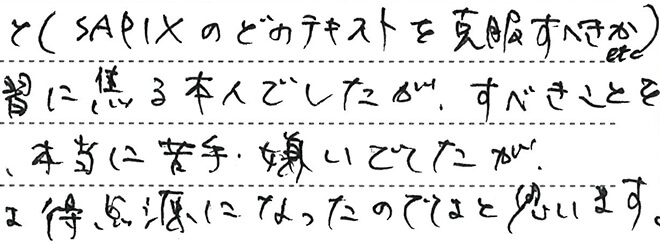 と(SAPIXのどのテキストを克服すべきかetc)
習に焦る本人でしたが、すべきことを
、本当に苦手・嫌いでしたが、
は得点源になったのではと思います。